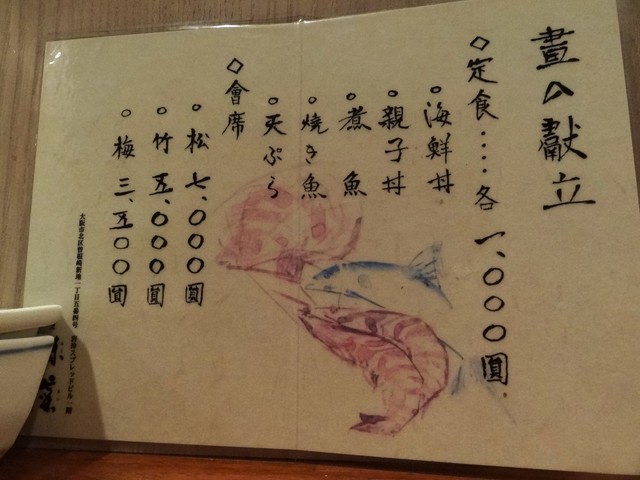 晝の献立
◇定食‥‥各 一、〇〇〇圓
○海鮮丼
○親子丼
○煮魚
○焼き魚
○天ぷら
◇會席
○松 七、〇〇〇圓
○竹 五、〇〇〇圓
○梅 三、五〇〇圓
大阪市北区曽根崎新地一丁目五番四号